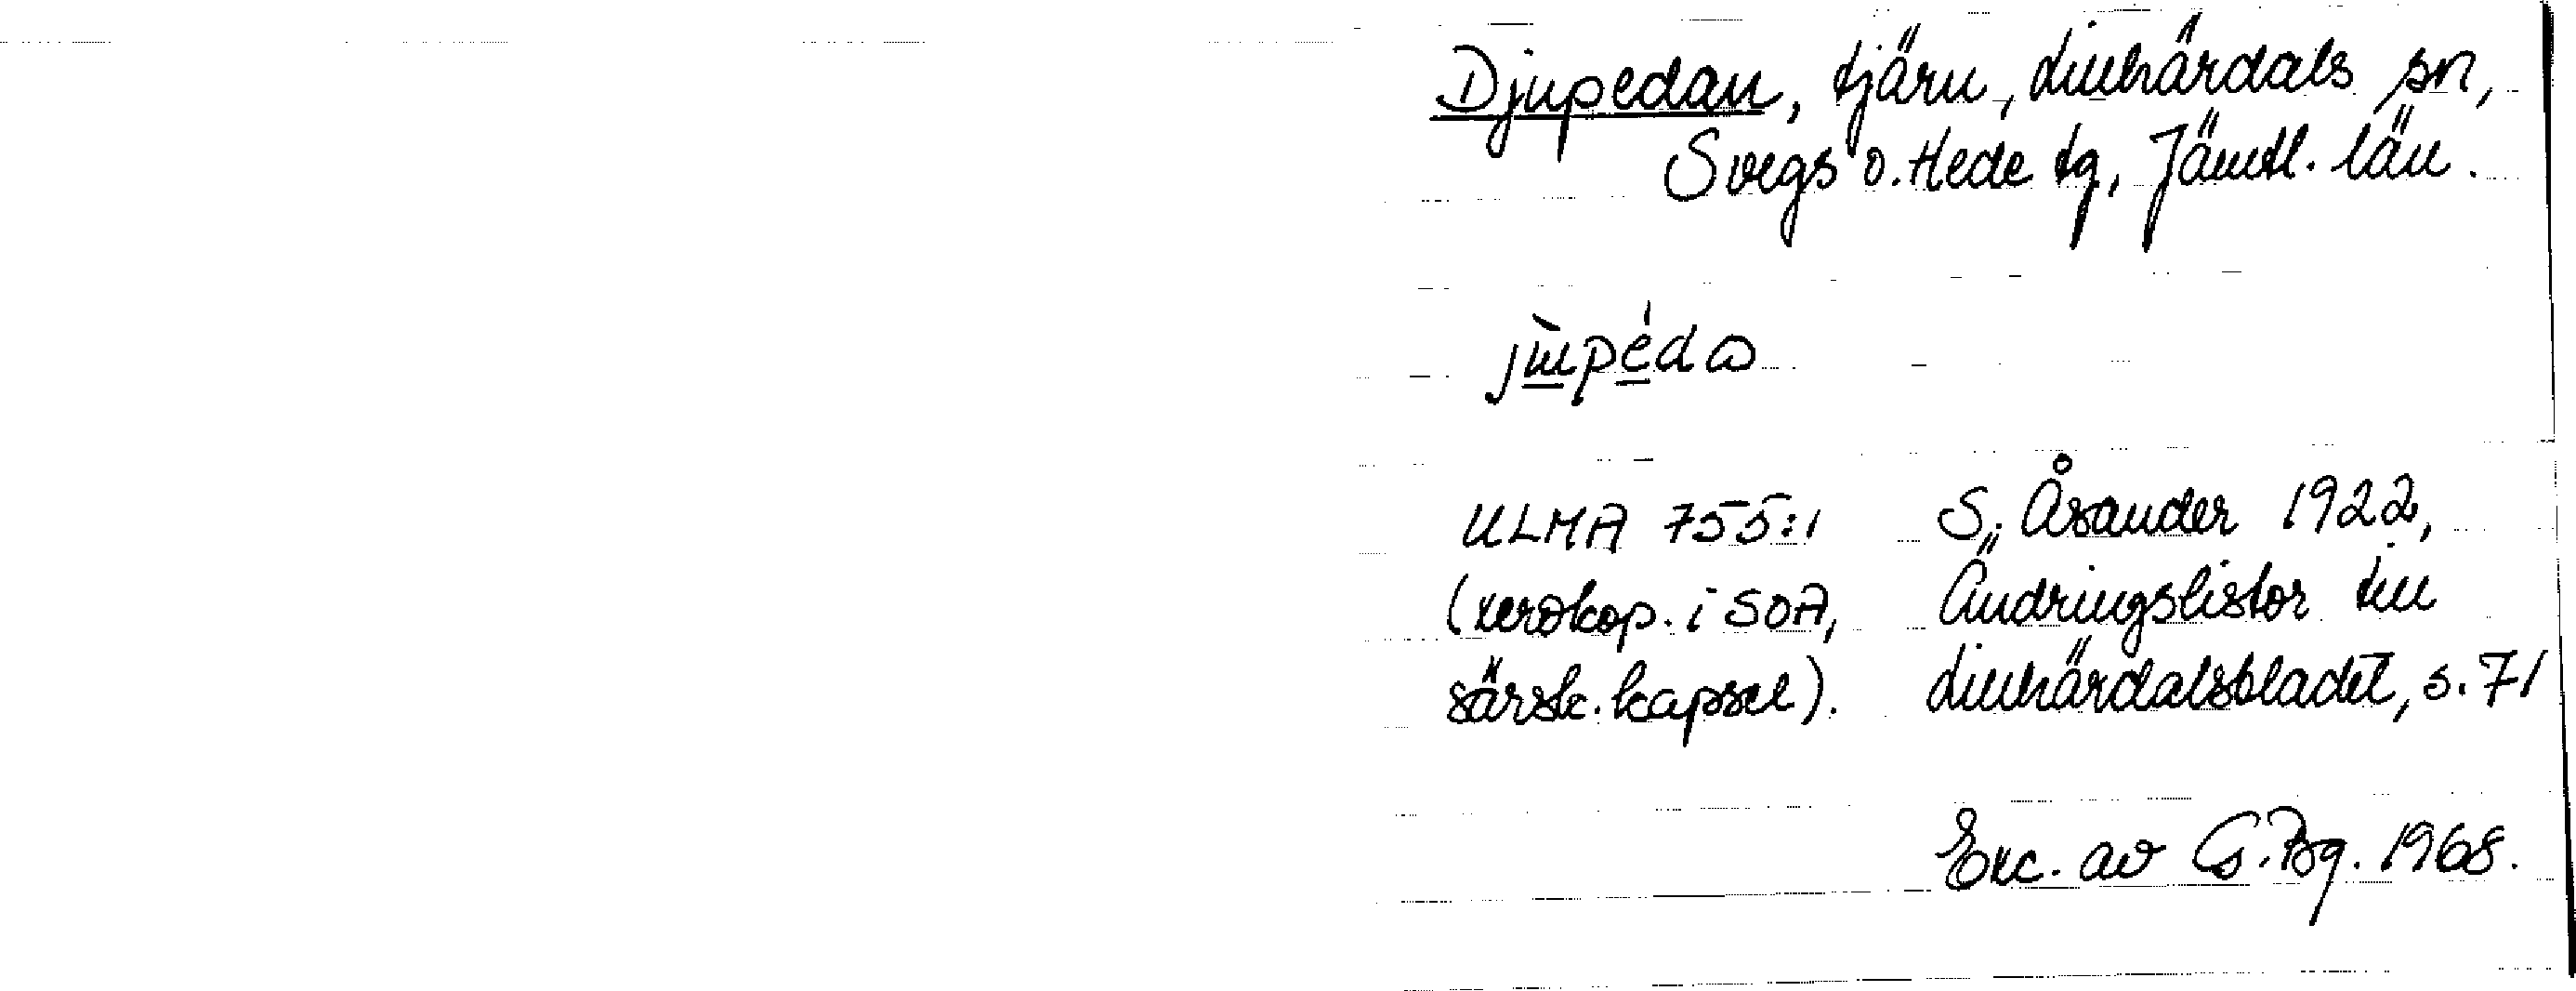 Djupedan, tjärn, Linhärdals sn,
Svegs o. Hede tg, Jämtl. län.
ULMA 755:1 S. Åsander 1922,
(xerokop. i SOA, Ändringslistor till
särsk. kapsel). Linhärdalsbladet, s. 71
Exc. av G. Bg. 1968.